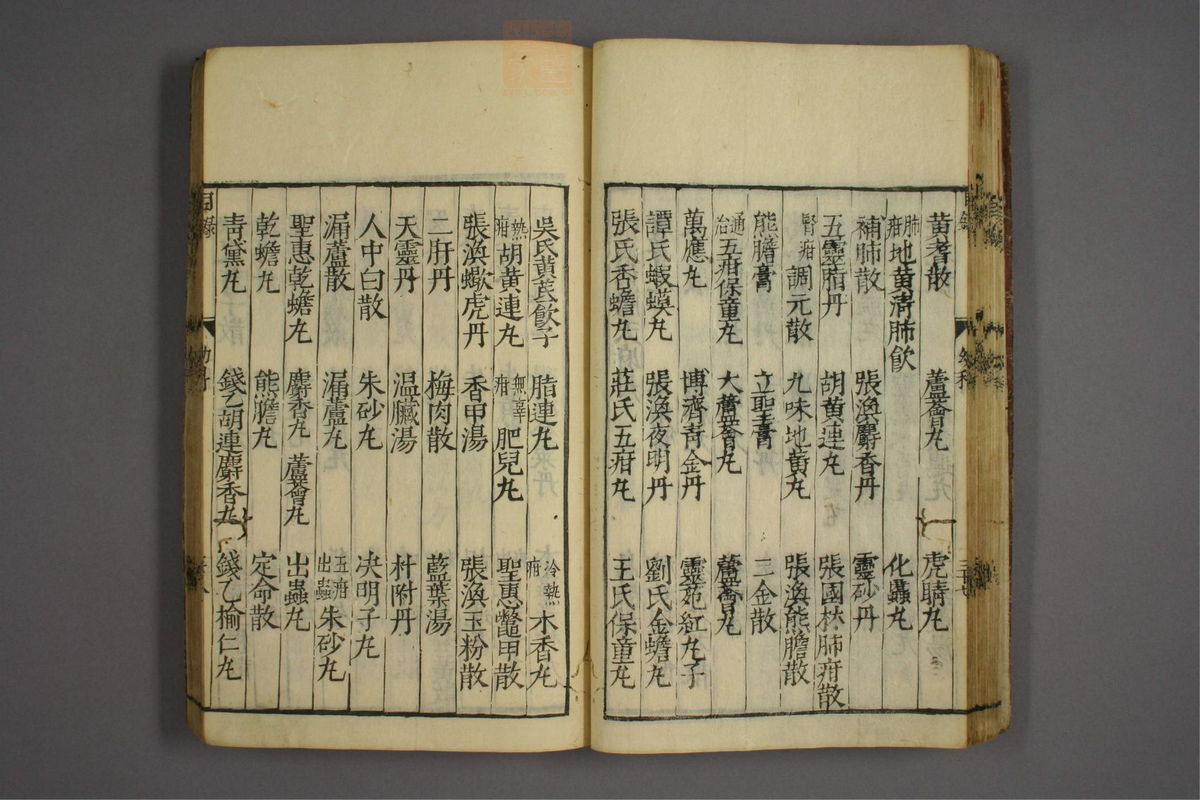 黄耆散 蘆薈丸 虎睛丸
肺疳地黄清肺飲 化蟲丸
補肺散 張渙麝香丹 靈砂丹
五靈脂丹 胡黄連丸 張國材肺疳散
腎疳調元散 九味地黄丸 張渙熊膽散
熊膽膏 立聖膏 三金散
通治五疳保童丸 大蘆薈丸 蘆薈丸
萬應丸 博濟青金丹 靈苑紅丸子
譚氏蝦蟆丸 張渙夜明丹 劉氏金蟾丸
張氏香蟾丸 莊氏五疳丸 王氏保童丸
吳氏黄芪飲子 脂連丸 冷熱疳木香丸
熱疳胡黄連丸 無辜疳肥兒丸 聖惠鼈甲散
張渙蠍虎丹 香甲湯 張渙玉粉散
二肝丹 梅肉散 藍葉湯
天靈丹 温臟湯 朴附丹
人中白散 朱砂丸 决明子丸
漏蘆散 漏蘆丸 五疳出蟲朱砂丸
聖惠乾蟾丸 麝香丸 蘆薈丸 出蟲丸
乾蟾丸 熊膽丸 定命散
青黛丸 錢乙胡連麝香丸 錢乙榆仁丸
目錄